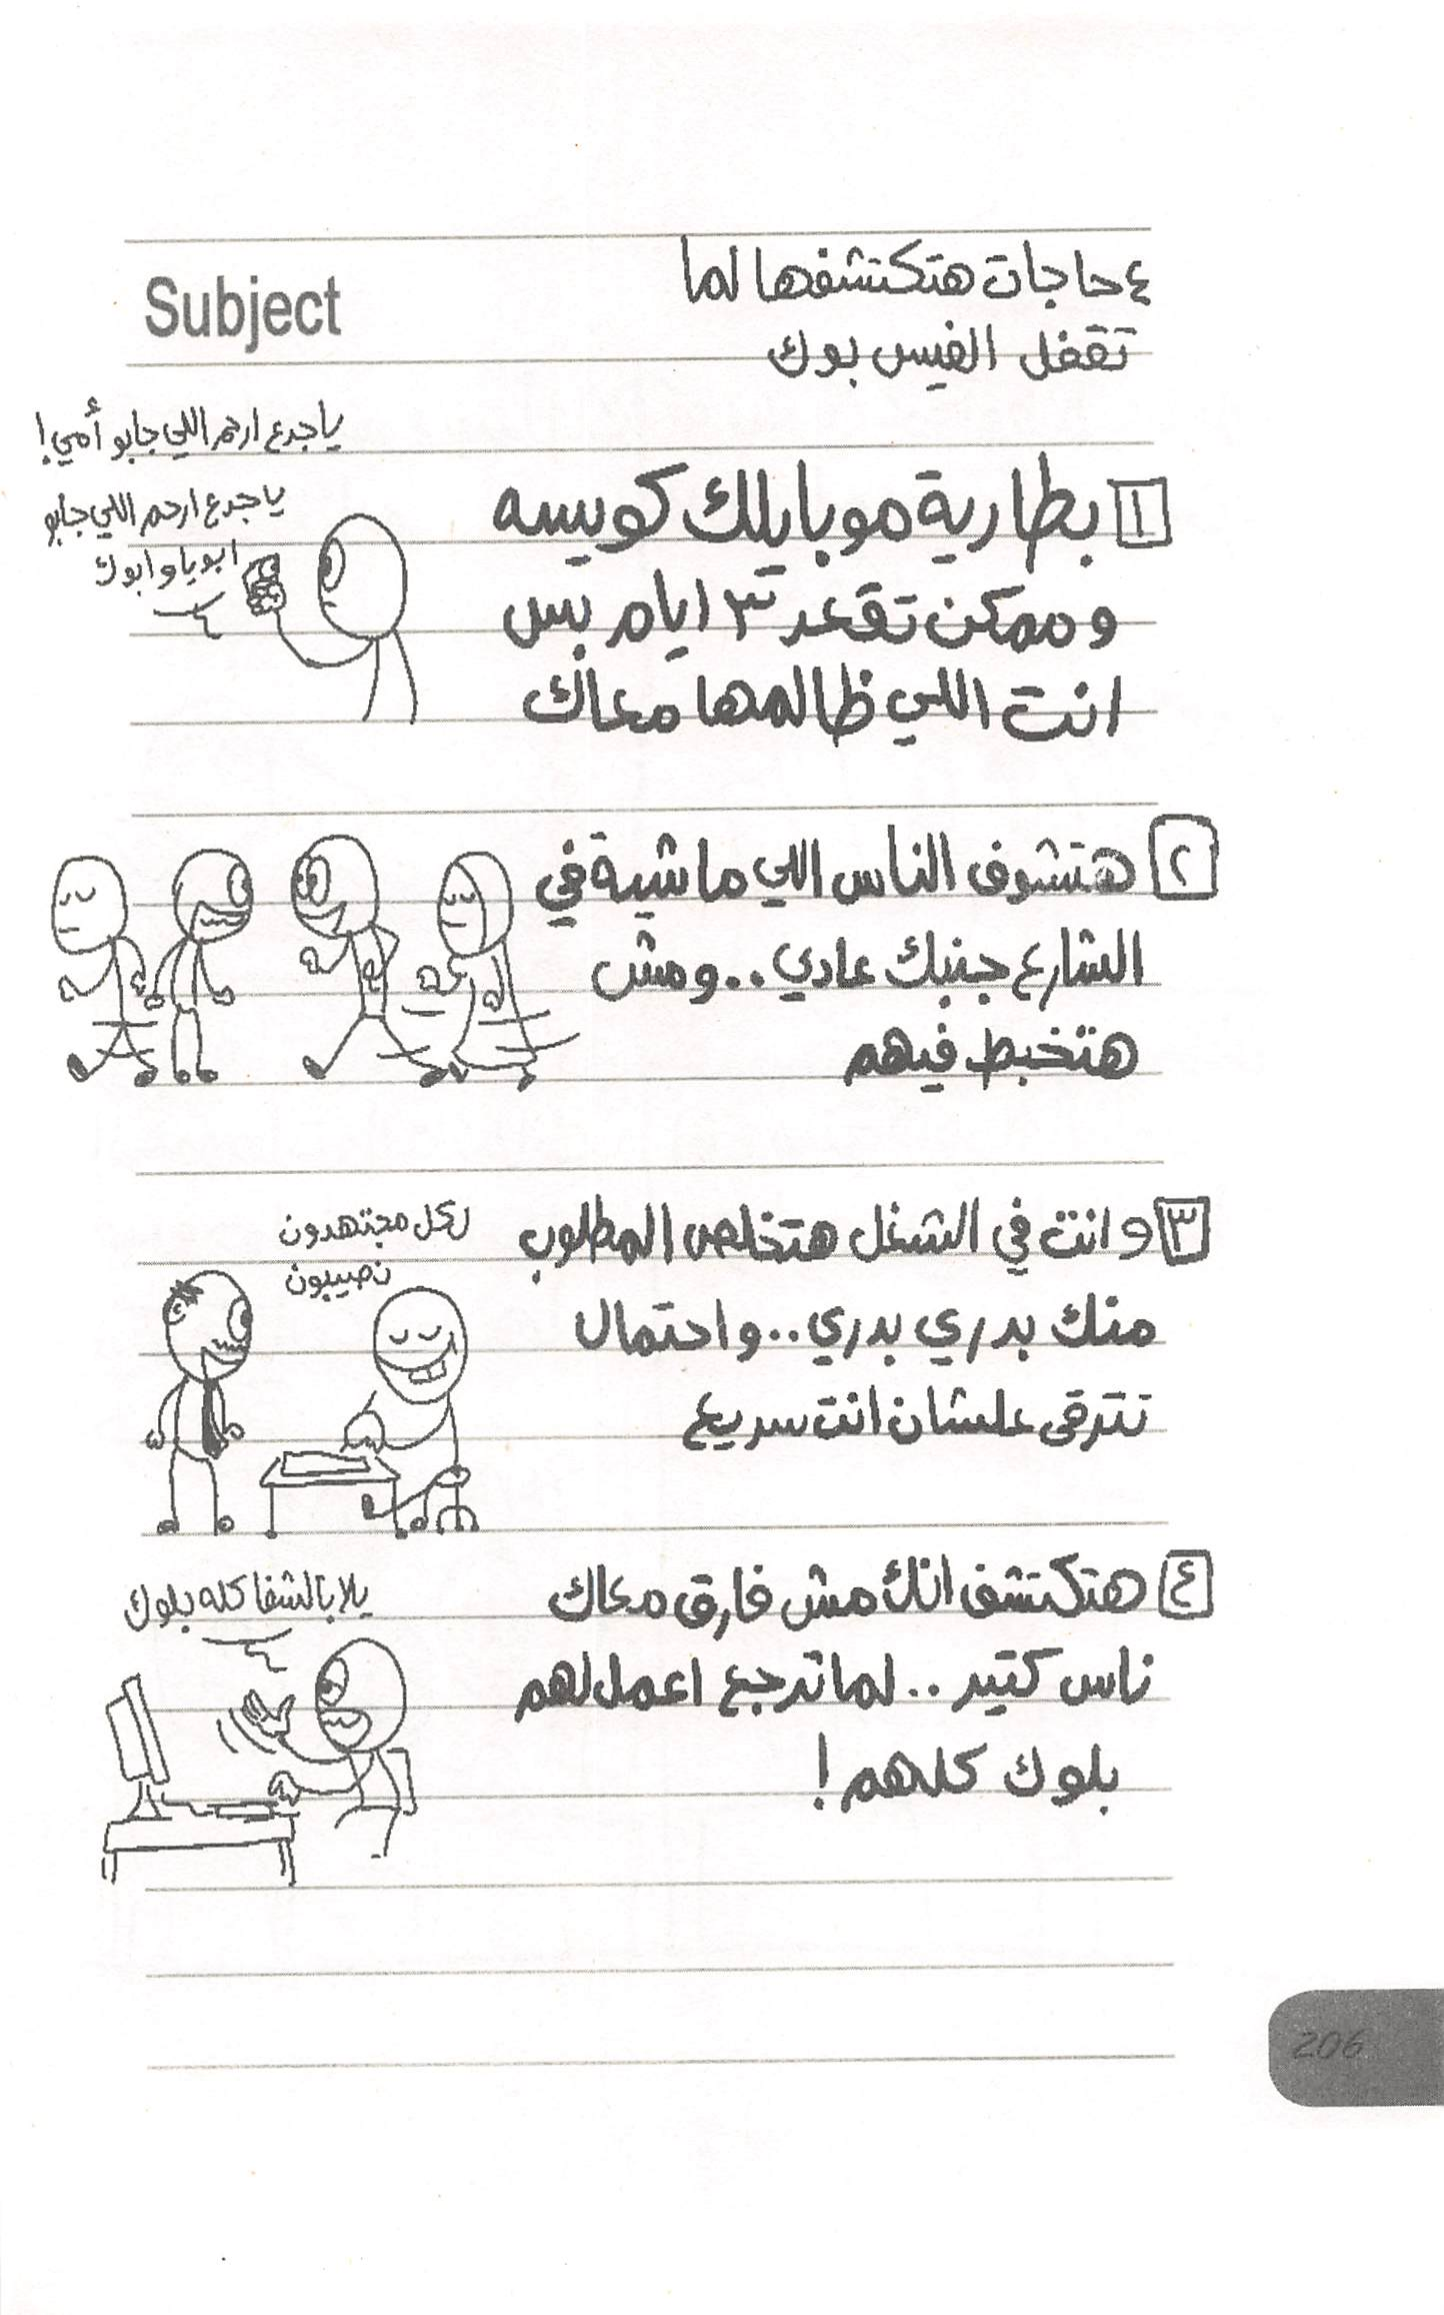 Subject
٤ حاجات هتكتشفها لما
تقفل الفيس بوك
ياجدع ارحم اللي جابو أمي!
ياجدع ارحم اللي جابو
ابويا وابوك
١ بطارية موبايلك كويسه
وممكن تقعد ٣ ايام بس
انت اللي ظالمها معاك
٢ هتشوف الناس اللي ماشية في
الشارع جنبك عادي..ومش
هتخبط فيهم
٣ وانت في الشغل هتخلص المطلوب
منك بدري بدري..واحتمال
تترقى علشان انت سريع
لكل مجتهدون
نصيبون
٤ هتكتشف انك مش فارق معاك
ناس كتير..لما ترجع اعمل لهم
بلوك كلهم!
يلا بالشفا كله بلوك
206